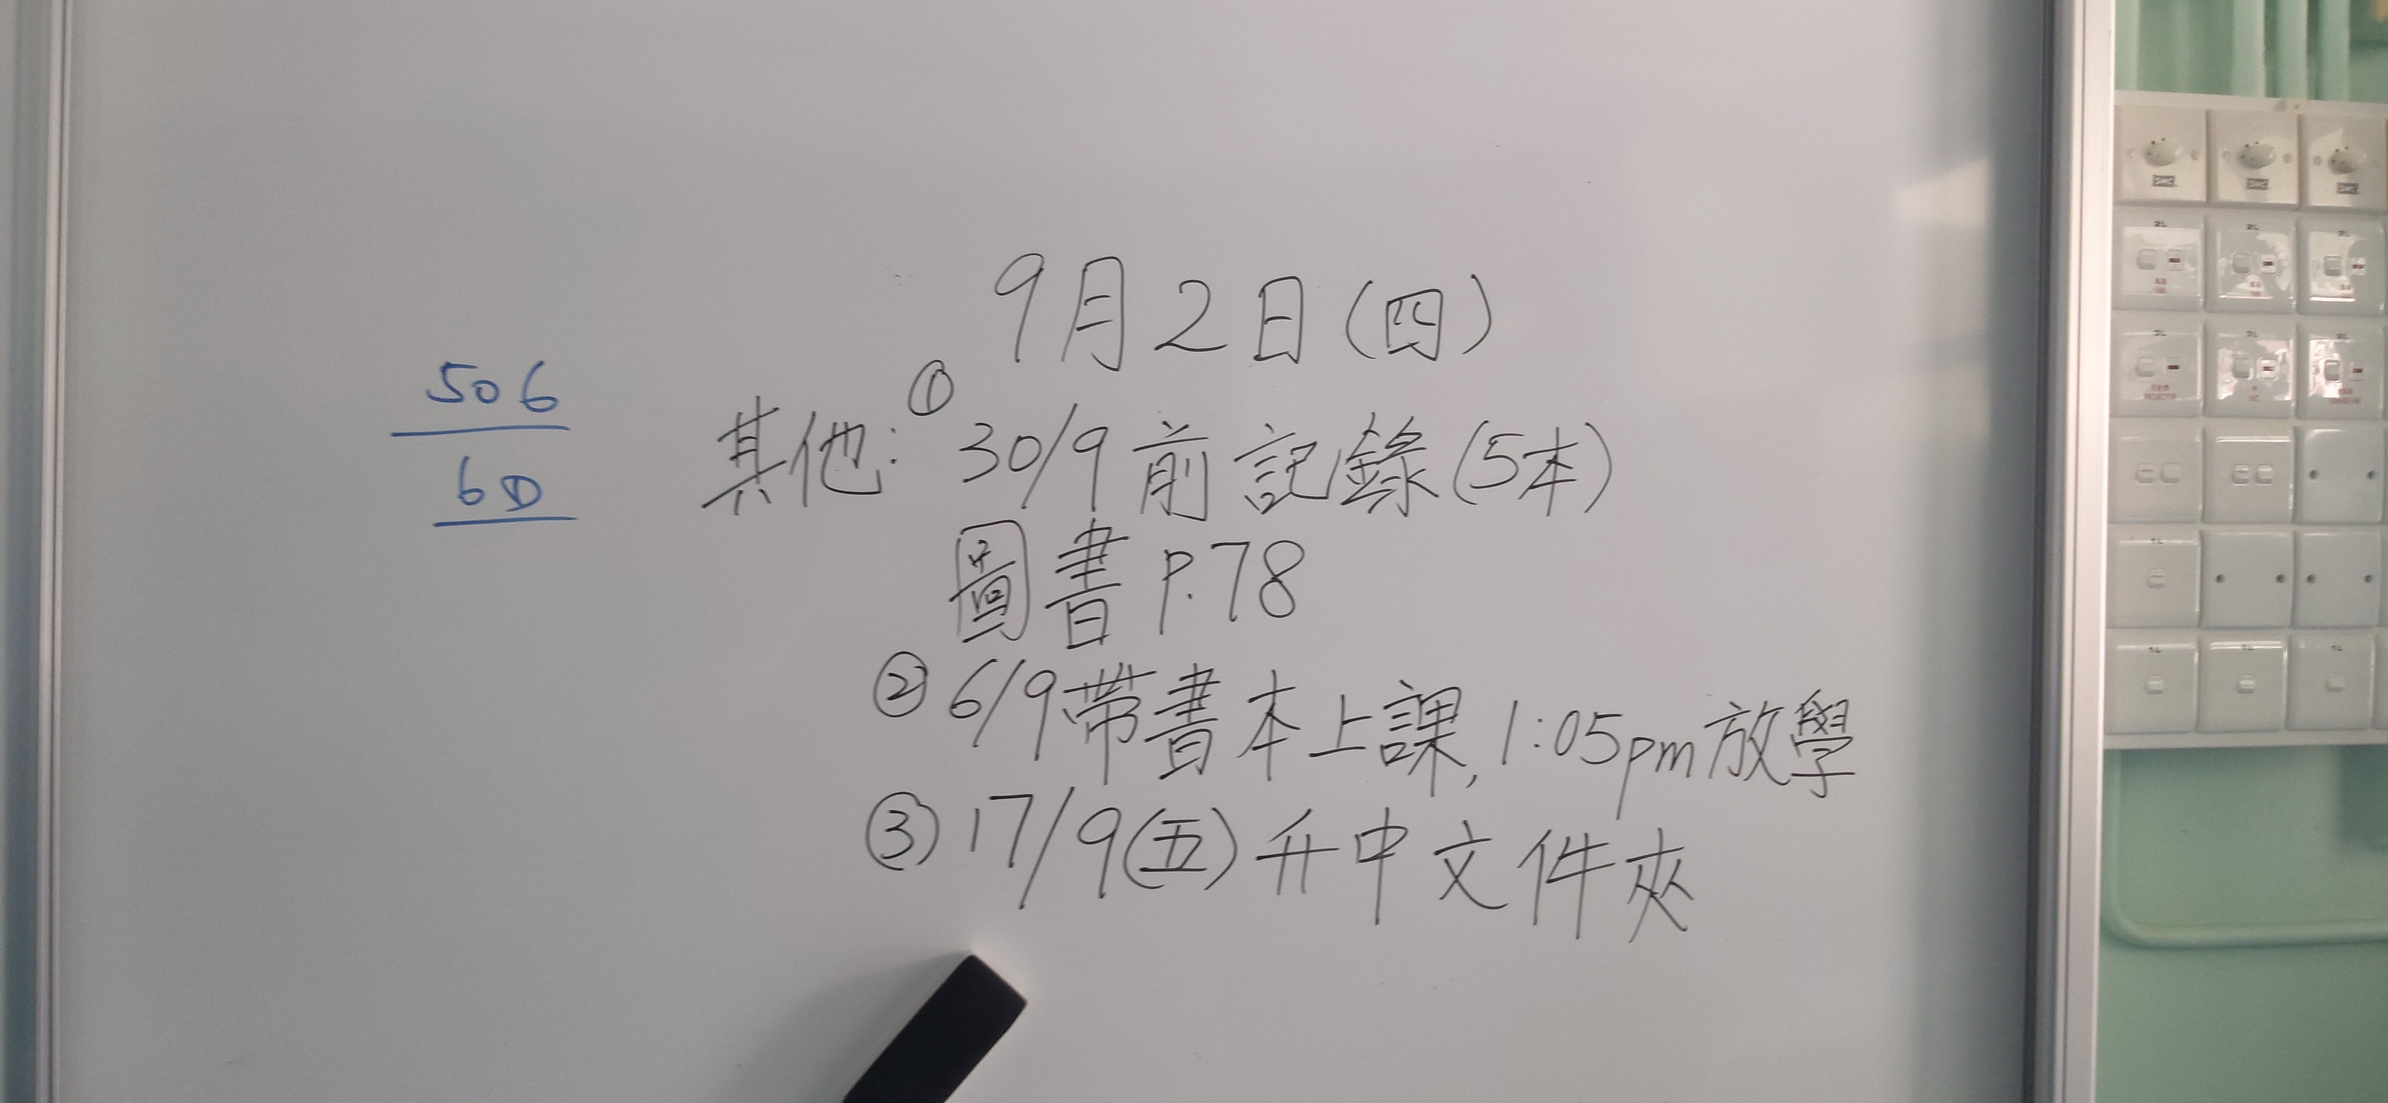 9月2日(四)
506
6D
其他: ① 30/9前記錄(5本)
圖書 P.78
② 6/9帶書本上課, 1:05pm放學
③ 17/9(五) 升中文件夾